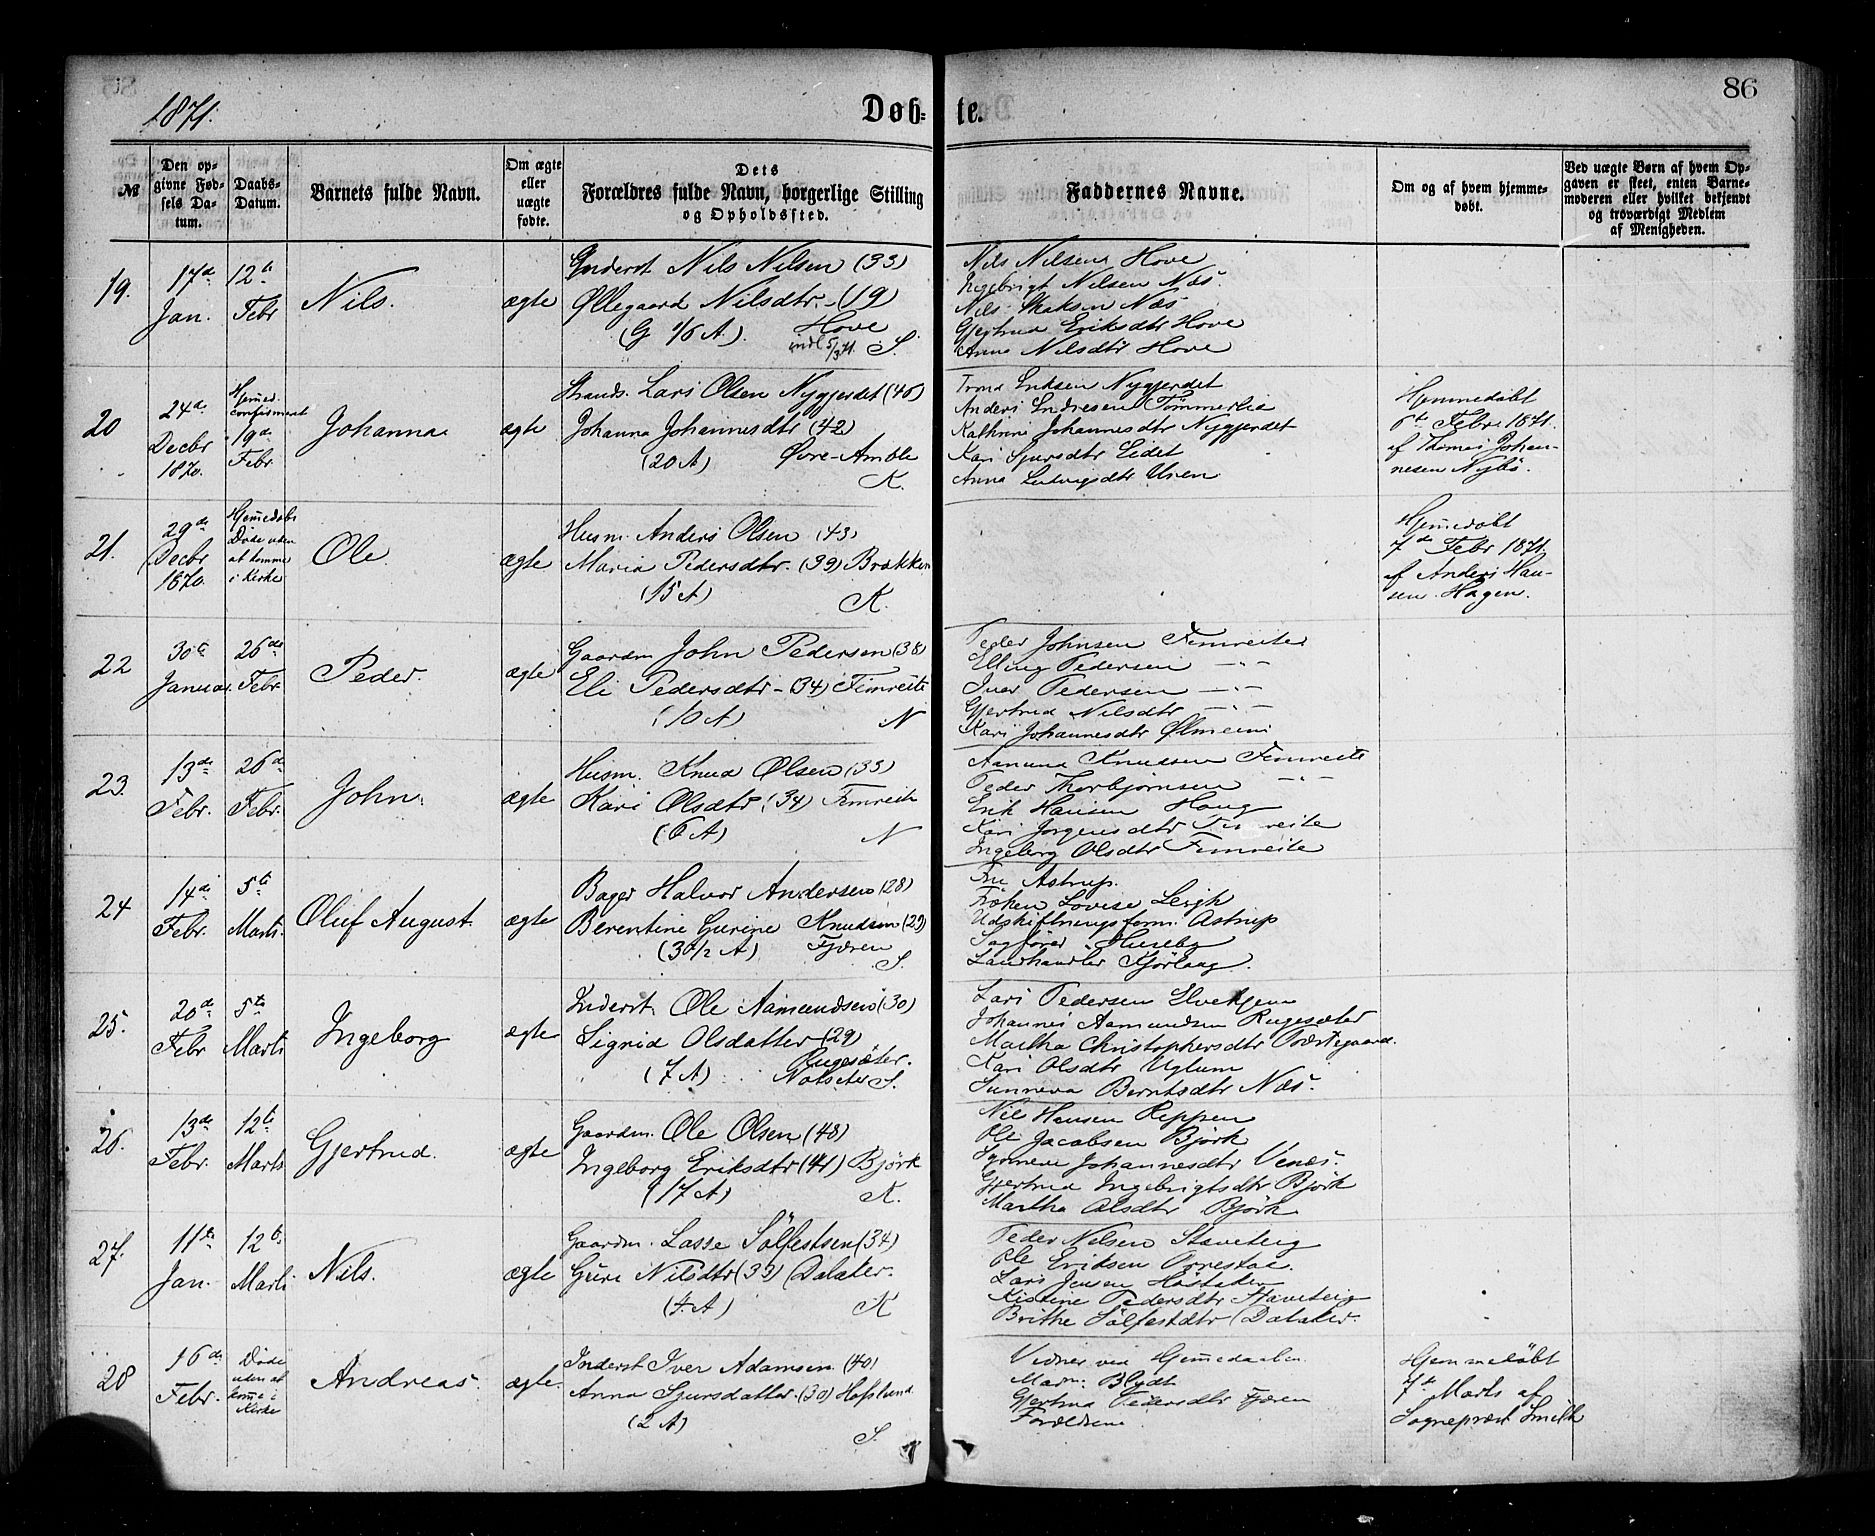 86
1871.
Døb-te.
№
Den opgivne Fødsels Datum.
Daabs-Datum.
Barnets fulde Navn.
Om ægte eller uægte fødte.
Dets Forældres fulde Navn, borgerlige Stilling og Opholdssted.
Faddernes Navne.
Om og af hvem hjemmedøbt.
Ved uægte Børn af hvem Opgaven er skeet, enten Barnemoderen eller hvilket bekjendt og troværdigt Medlem af Menigheden.
19.
17de Jan.
12te Febr
Nils.
ægte
Inderst Nils Nilsen (33)
Øllegaard Nilsdtr. (19)
(G 1/6 A). Hove
indl 5/3 71. S.
Nils Nilsen Hove
Ingebrigt Nilsen Næs.
Nils Næs
Gjertrud Eriksdtr Hove
Anna Nilsdtr Hove
20
24de Decbr 1870.
Hjemmed. confirmeret 19de Febr
Johanna
ægte
Strands. Lars Olsen Nygjerdet (46)
Johanna Johannesdtr (42)
(20 A) Øvre-Amble
K.
Trond Nygjerdet
Anders Endresen Tømmerlia
Kathrine Johannesdtr Nygjerdet
Kari Sjursdtr Eidet
Anna Ludvigsdtr Uren
Hjemmedøbt
6te Febr 1871.
af Thomas Johan-
nesen Nybø.
21.
29de Decbr 1870.
Hjemedøbt Døde uden at komme i Kirke
Ole
ægte
Husm. Anders Olsen (43)
Maria Pedersdtr. (39) Brækken
(15 A)
K.
Hjemedøbt
7de Febr 1871.
af Anders Han-
sen Hagen.
22
30te Januar.
26de Febr.
Peder.
ægte
Gaardm John Pedersen (38)
Eli Pedersdtr - (34) Fimreite
(10 A) N
Peder Johnsen Fimreite
Elling Pedersen - " -
Iver Pedersen - " -
Gjertrud Nilsdtr - " -
Kari Johannesdtr Ølmeim
23.
13de Febr.
26de Febr.
John.
ægte
Husm. Knud Olsen (33)
Kari Olsdtr (34) Fimreite
(6 A) N
Aamund Knudsen Fimreite
Peder Thorbjørnsen - " -
Erik Hansen Haug
Kari Jørgensdtr Fimreite
Ingeborg Olsdtr Fimreite
24
14de Febr.
5te Marts.
Oluf August.
ægte
Bager Halvor Andersen (28)
Berentine Gurine Knudsen (29)
(3 1/2 A) Fjæren
S.
Fru Astrup.
Frøken Lovise Leigh
Udskiftningsform. Astrup
Sagfører Huseby
Landhandler Kjørlaug.
25.
20de Febr
5te Marts
Ingeborg
ægte
Inderst. Ole Aamundsen (30)
Sigrid Olsdatter (29)
Rugesæter.
(7 A) Notseter S.
Lars Pedersen
Johannes Aamundsen Rugesæter
Martha Christophersdtr Præstegaard.
Kari Olsdtr Uglum
Sunneva Berntsdtr Næs.
26.
13de Febr.
12te Marts
Gjertrud.
ægte
Gaardm. Ole Olsen (48)
Ingeborg Eriksdtr (41) Bjørk
(17 A) K.
Nils Hansen Reppen
Ole Jacobsen Bjørk
Synneve Johannesdtr Venæs.
Gjertrud Ingebrigtsdtr Bjørk
Martha Olsdtr Bjørk
27.
11te Jan.
12te Marts
Nils.
ægte
Gaardm. Lasse Sølfestsen (34)
Guri Nilsdtr (33) Dalaker.
(4 A) K
Peder Nilsen Staveteig
Ole Eriksen Orrestad.
Lars Jensen
Kistine Pedersdtr Staveteig
Brithe Sølfestdtr Dalaker.
28
16de Febr.
Døde uden at komme i Kirke
Andreas.
ægte.
Inderst Iver Adamsen (40)
Anna Sjursdatter (30) Hofslund
(2 A)
S.
Vidner ved Hjemmedaaben
Madm. Blydt
Gjertrud Pedersdtr Fjæren
Forældrene
Hjemmedøbt
7de Marts af
Sognepræst Smith